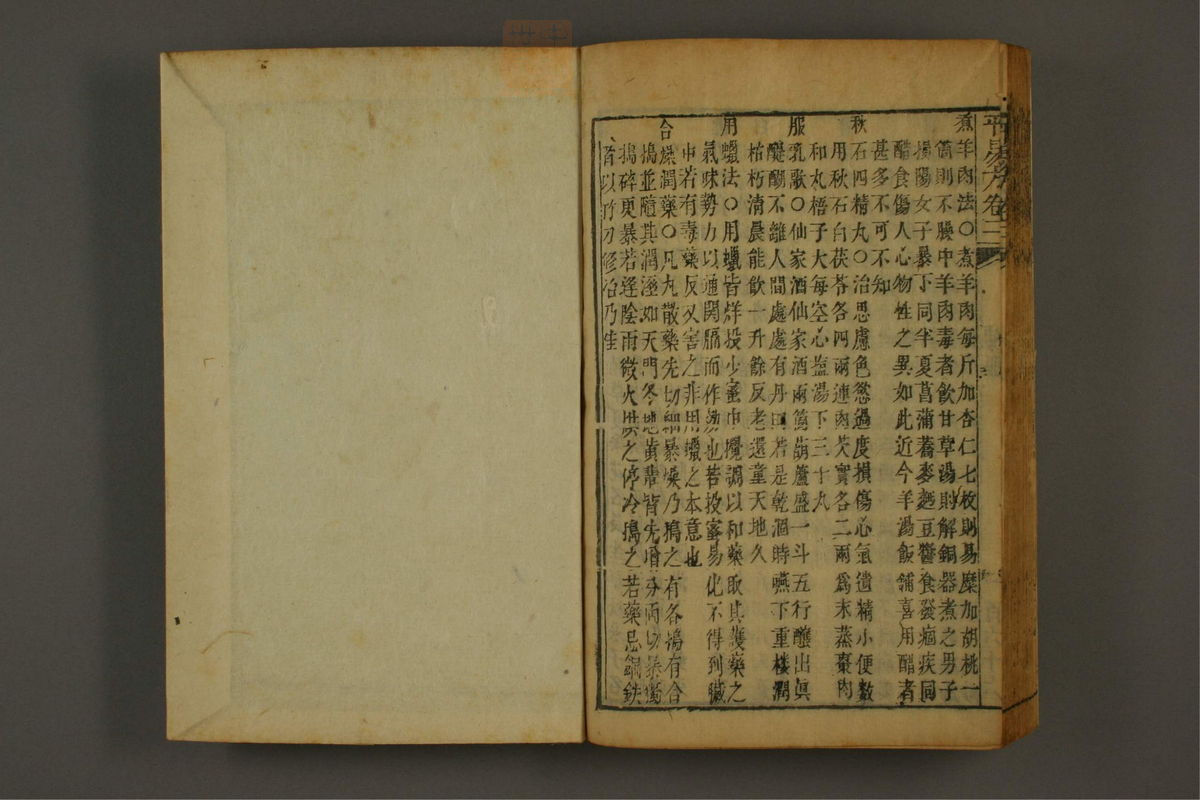 平易方卷三
煮羊肉法○煮羊肉每斤加杏仁七枚則易糜加胡桃一
箇則不臊中羊肉毒者飲甘草湯則解銅器煮之男子
損陽女子暴下同半夏菖蒲蕎麥麪豆醬食發痼疾同
醋食傷人心物性之異如此近今羊湯飯舖喜用醋者
甚多不可不知
秋石四精丸○治思慮色慾過度損傷心氣遺精小便數
用秋石白茯苓各四兩連肉芡實各二兩爲末蒸棗肉
和丸梧子大每空心塩湯下三十丸
服乳歌○仙家酒仙家酒兩箇葫蘆盛一斗五行釀出眞
醍醐不離人間處處有丹田若是乾涸時嚥下重樓潤
枯朽淸晨能飲一升餘反老還童天地久
用蠟法○用蠟皆烊投少蜜中攪調以和藥取其護藥之
氣味勢力以通関膈而作効也若投蜜易化不得到臟
中若有毒藥反又害之非用蠟之本意也
合燥潤藥○凡丸散藥先切細暴燥乃搗之有各搗有合
搗並隨其潤溼如天門冬地黃輩皆先增分兩切暴獨
搗碎更暴若逢陰雨微火烘之停冷搗之若藥忌銅鉄
者以竹刀修治乃佳